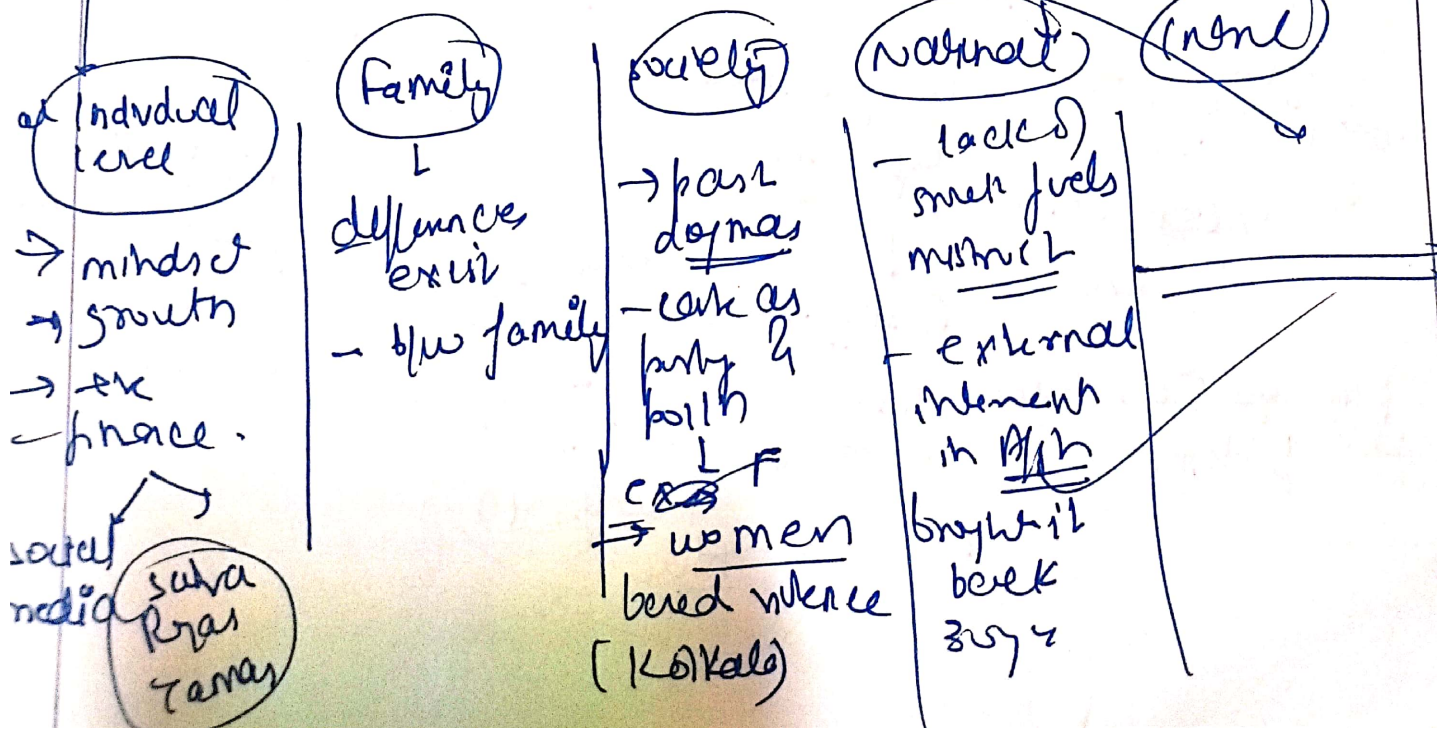 at Individual
level
→ mindset
→ growth
→ etc
- finance.
social
media
Satva
Rjas
Tamas
Family
differences
exist
- b/w family
society
→ past
dogmas
- caste as
party &
women
based violence
(Kolkata)
National
- lack of
mistrust
- external
in Afgh
brought it
back
Intnl